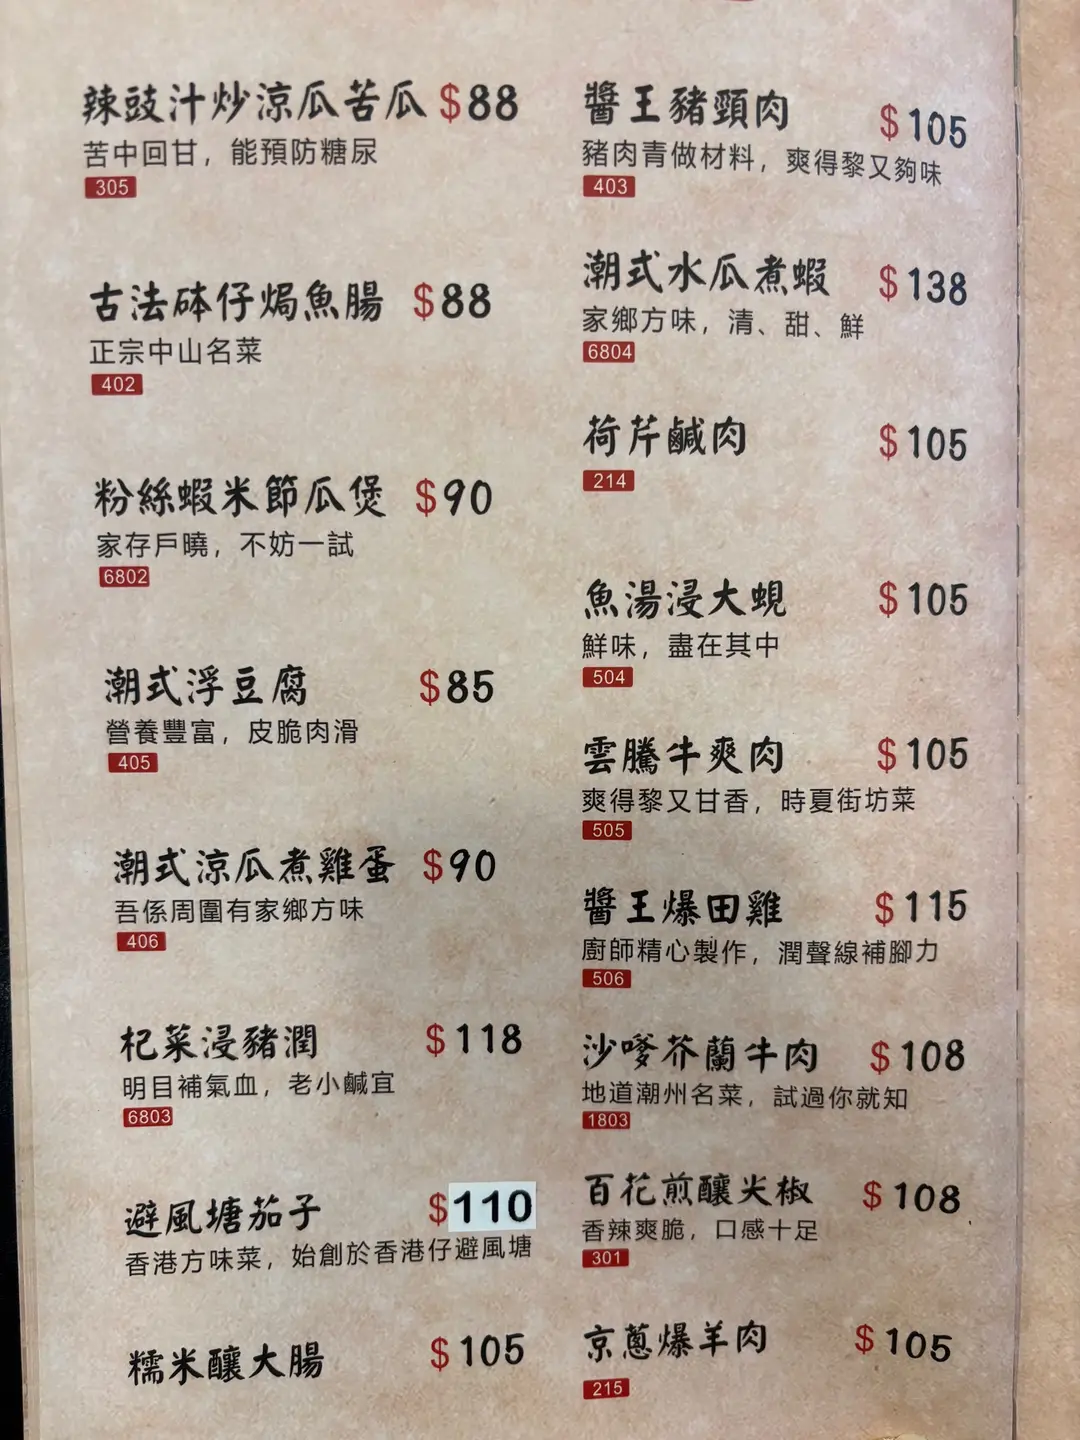 辣豉汁炒涼瓜苦瓜 $88
苦中回甘，能預防糖尿
305
古法砵仔焗魚腸 $88
正宗中山名菜
402
粉絲蝦米節瓜煲 $90
家存戶曉，不妨一試
6802
潮式浮豆腐 $85
營養豐富，皮脆肉滑
405
潮式涼瓜煮雞蛋 $90
吾係周圍有家鄉方味
406
杞菜浸豬潤 $118
明目補氣血，老小鹹宜
6803
避風塘茄子 $110
香港方味菜，始創於香港仔避風塘
糯米釀大腸 $105
醬王豬頸肉 $105
豬肉青做材料，爽得黎又夠味
403
潮式水瓜煮蝦 $138
家鄉方味，清、甜、鮮
6804
荷芹鹹肉 $105
214
魚湯浸大蜆 $105
鮮味，盡在其中
504
雲騰牛爽肉 $105
爽得黎又甘香，時夏街坊菜
505
醬王爆田雞 $115
廚師精心製作，潤聲線補腳力
506
沙嗲芥蘭牛肉 $108
地道潮州名菜，試過你就知
1803
百花煎釀尖椒 $108
香辣爽脆，口感十足
301
京蔥爆羊肉 $105
215